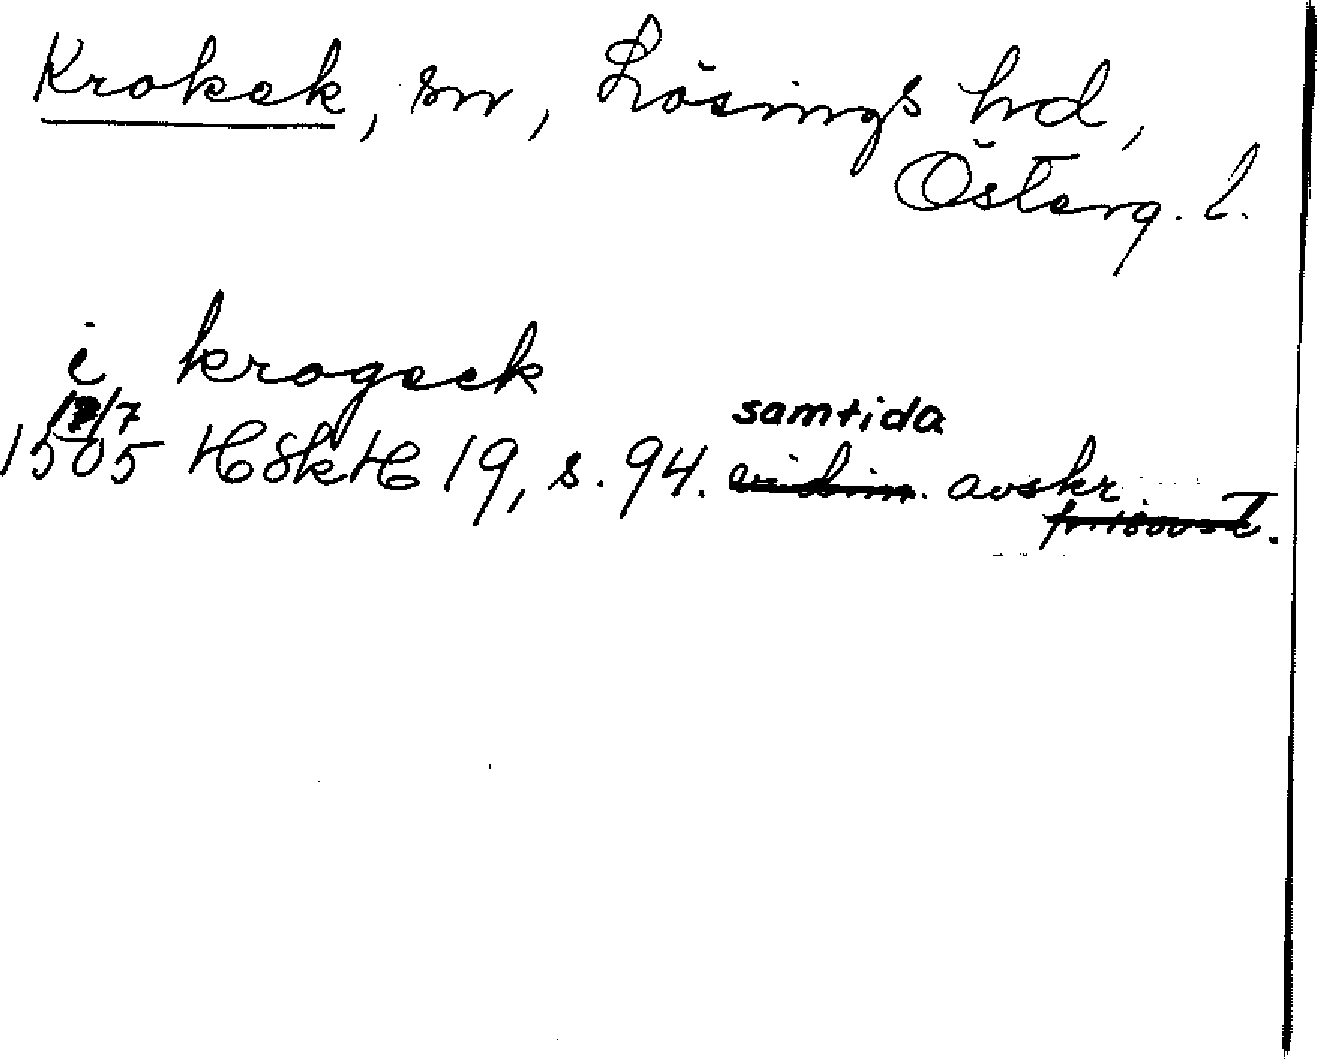 Krokek, sn, Lösings hd,
Österg. l.
i krogeek
12/7
samtida
1505 HSkH 19, s. 94. vidim. avskr.
fr. 1500-t.